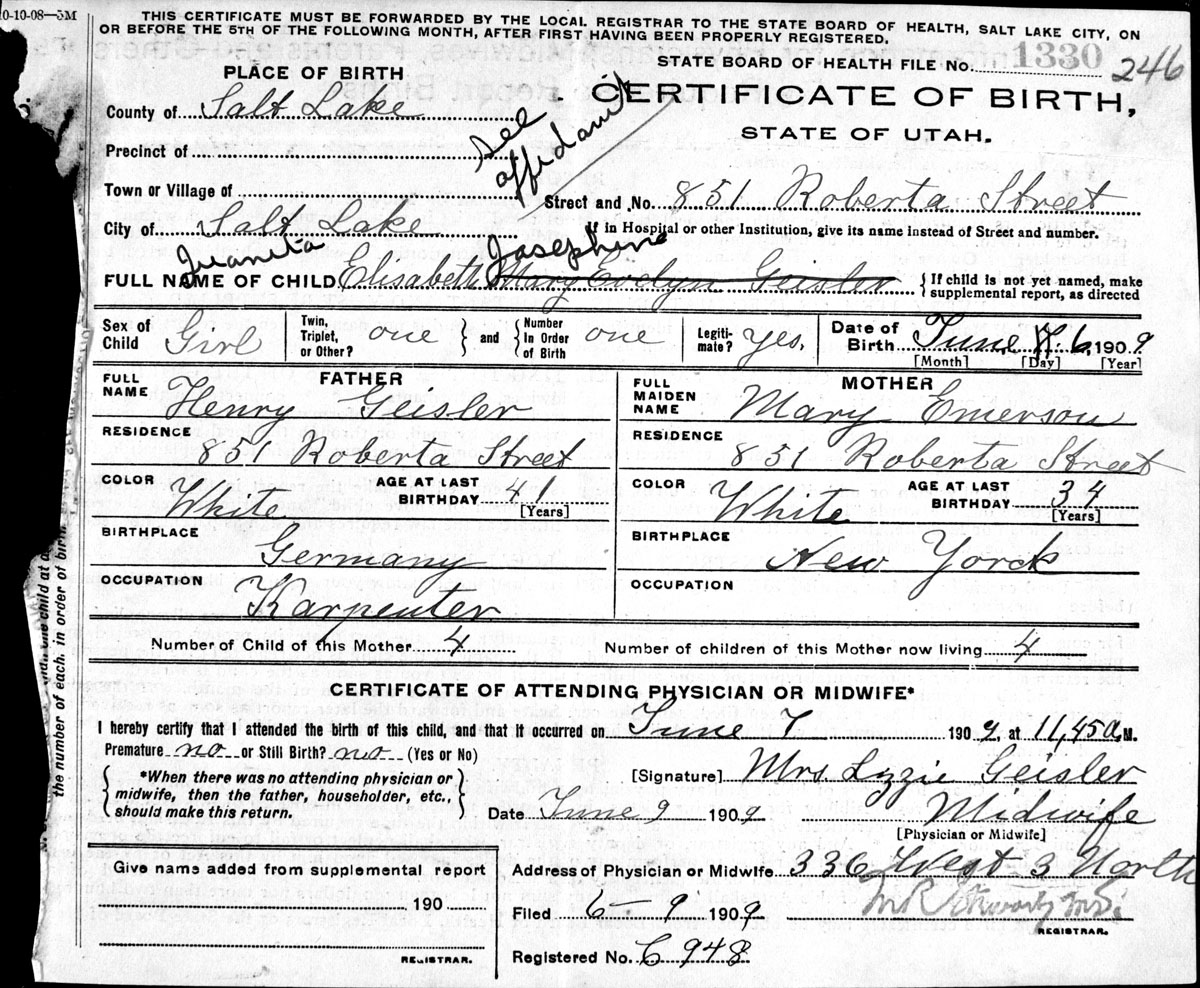 10-10-08—5M
THIS CERTIFICATE MUST BE FORWARDED BY THE LOCAL REGISTRAR TO THE STATE BOARD OF HEALTH, SALT LAKE CITY, ON
OR BEFORE THE 5TH OF THE FOLLOWING MONTH, AFTER FIRST HAVING BEEN PROPERLY REGISTERED.
STATE BOARD OF HEALTH FILE No. 1330 246
PLACE OF BIRTH
CERTIFICATE OF BIRTH,
STATE OF UTAH.
County of Salt Lake
See affidavit
Precinct of
Town or Village of
Street and No. 851 Roberta Street
City of Salt Lake
If in Hospital or other Institution, give its name instead of Street and number.
Juanita Josephine
FULL NAME OF CHILD Elisabeth Mary Evelyn Geisler
{If child is not yet named, make supplemental report, as directed
Sex of Child Girl
Twin, Triplet, or Other? one } and { Number In Order of Birth one
Legiti-mate? yes.
Date of Birth June 7. 6, 1909
[Month] [Day] [Year]
FATHER
FULL NAME Henry Geisler
MOTHER
FULL MAIDEN NAME Mary Emerson
RESIDENCE 851 Roberta Street
RESIDENCE 851 Roberta Street
COLOR White
AGE AT LAST BIRTHDAY 41 [Years]
COLOR White
AGE AT LAST BIRTHDAY 34 [Years]
BIRTHPLACE Germany
BIRTHPLACE New Yorck
OCCUPATION Karpenter
OCCUPATION
Number of Child of this Mother 4
Number of children of this Mother now living 4
CERTIFICATE OF ATTENDING PHYSICIAN OR MIDWIFE*
I hereby certify that I attended the birth of this child, and that it occurred on June 7 1909, at 11,45 a. M.
Premature no or Still Birth? no (Yes or No)
{*When there was no attending physician or midwife, then the father, householder, etc., should make this return.}
[Signature] Mrs Lizzie Geisler
Date June 9 1909
Midwife
[Physician or Midwife]
Give name added from supplemental report
190
REGISTRAR.
Address of Physician or Midwife 336 West 3 North
Filed 6-9 1909
REGISTRAR.
Registered No. C 948
the number of each, in order of birth